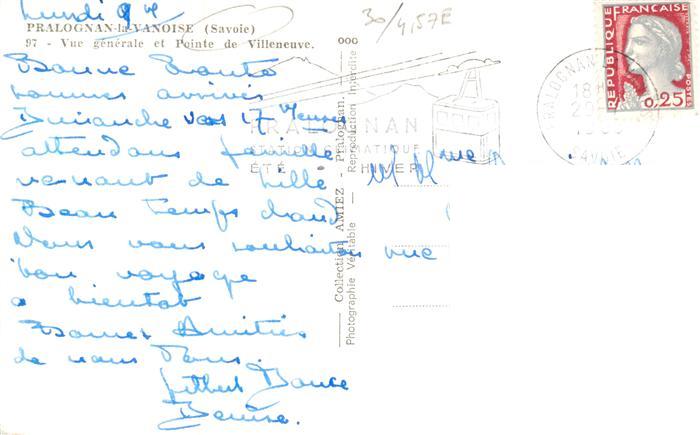 Lundi
30/4,57E
PRALOGNAN-la-VANOISE (Savoie)
97 - Vue générale et Pointe de Villeneuve.
000
Bonne Santé
sommes arrivés
Dimanche vers 17 heures
attendons famille
venant de Lille
Beau temps chaud
Nous vous souhaitons
bon voyage
a bientot
Bonnes Amitiés
de nous Tous.
Denise.
Collection AMIEZ - Pralognan.
Photographie Véritable - Reproduction Interdite
PRALOGNAN
STATION CLIMATIQUE
ÉTÉ HIVER
M Mme
rue
PRALOGNAN
18H
SAVOIE
REPUBLIQUE FRANÇAISE
POSTES
0,25